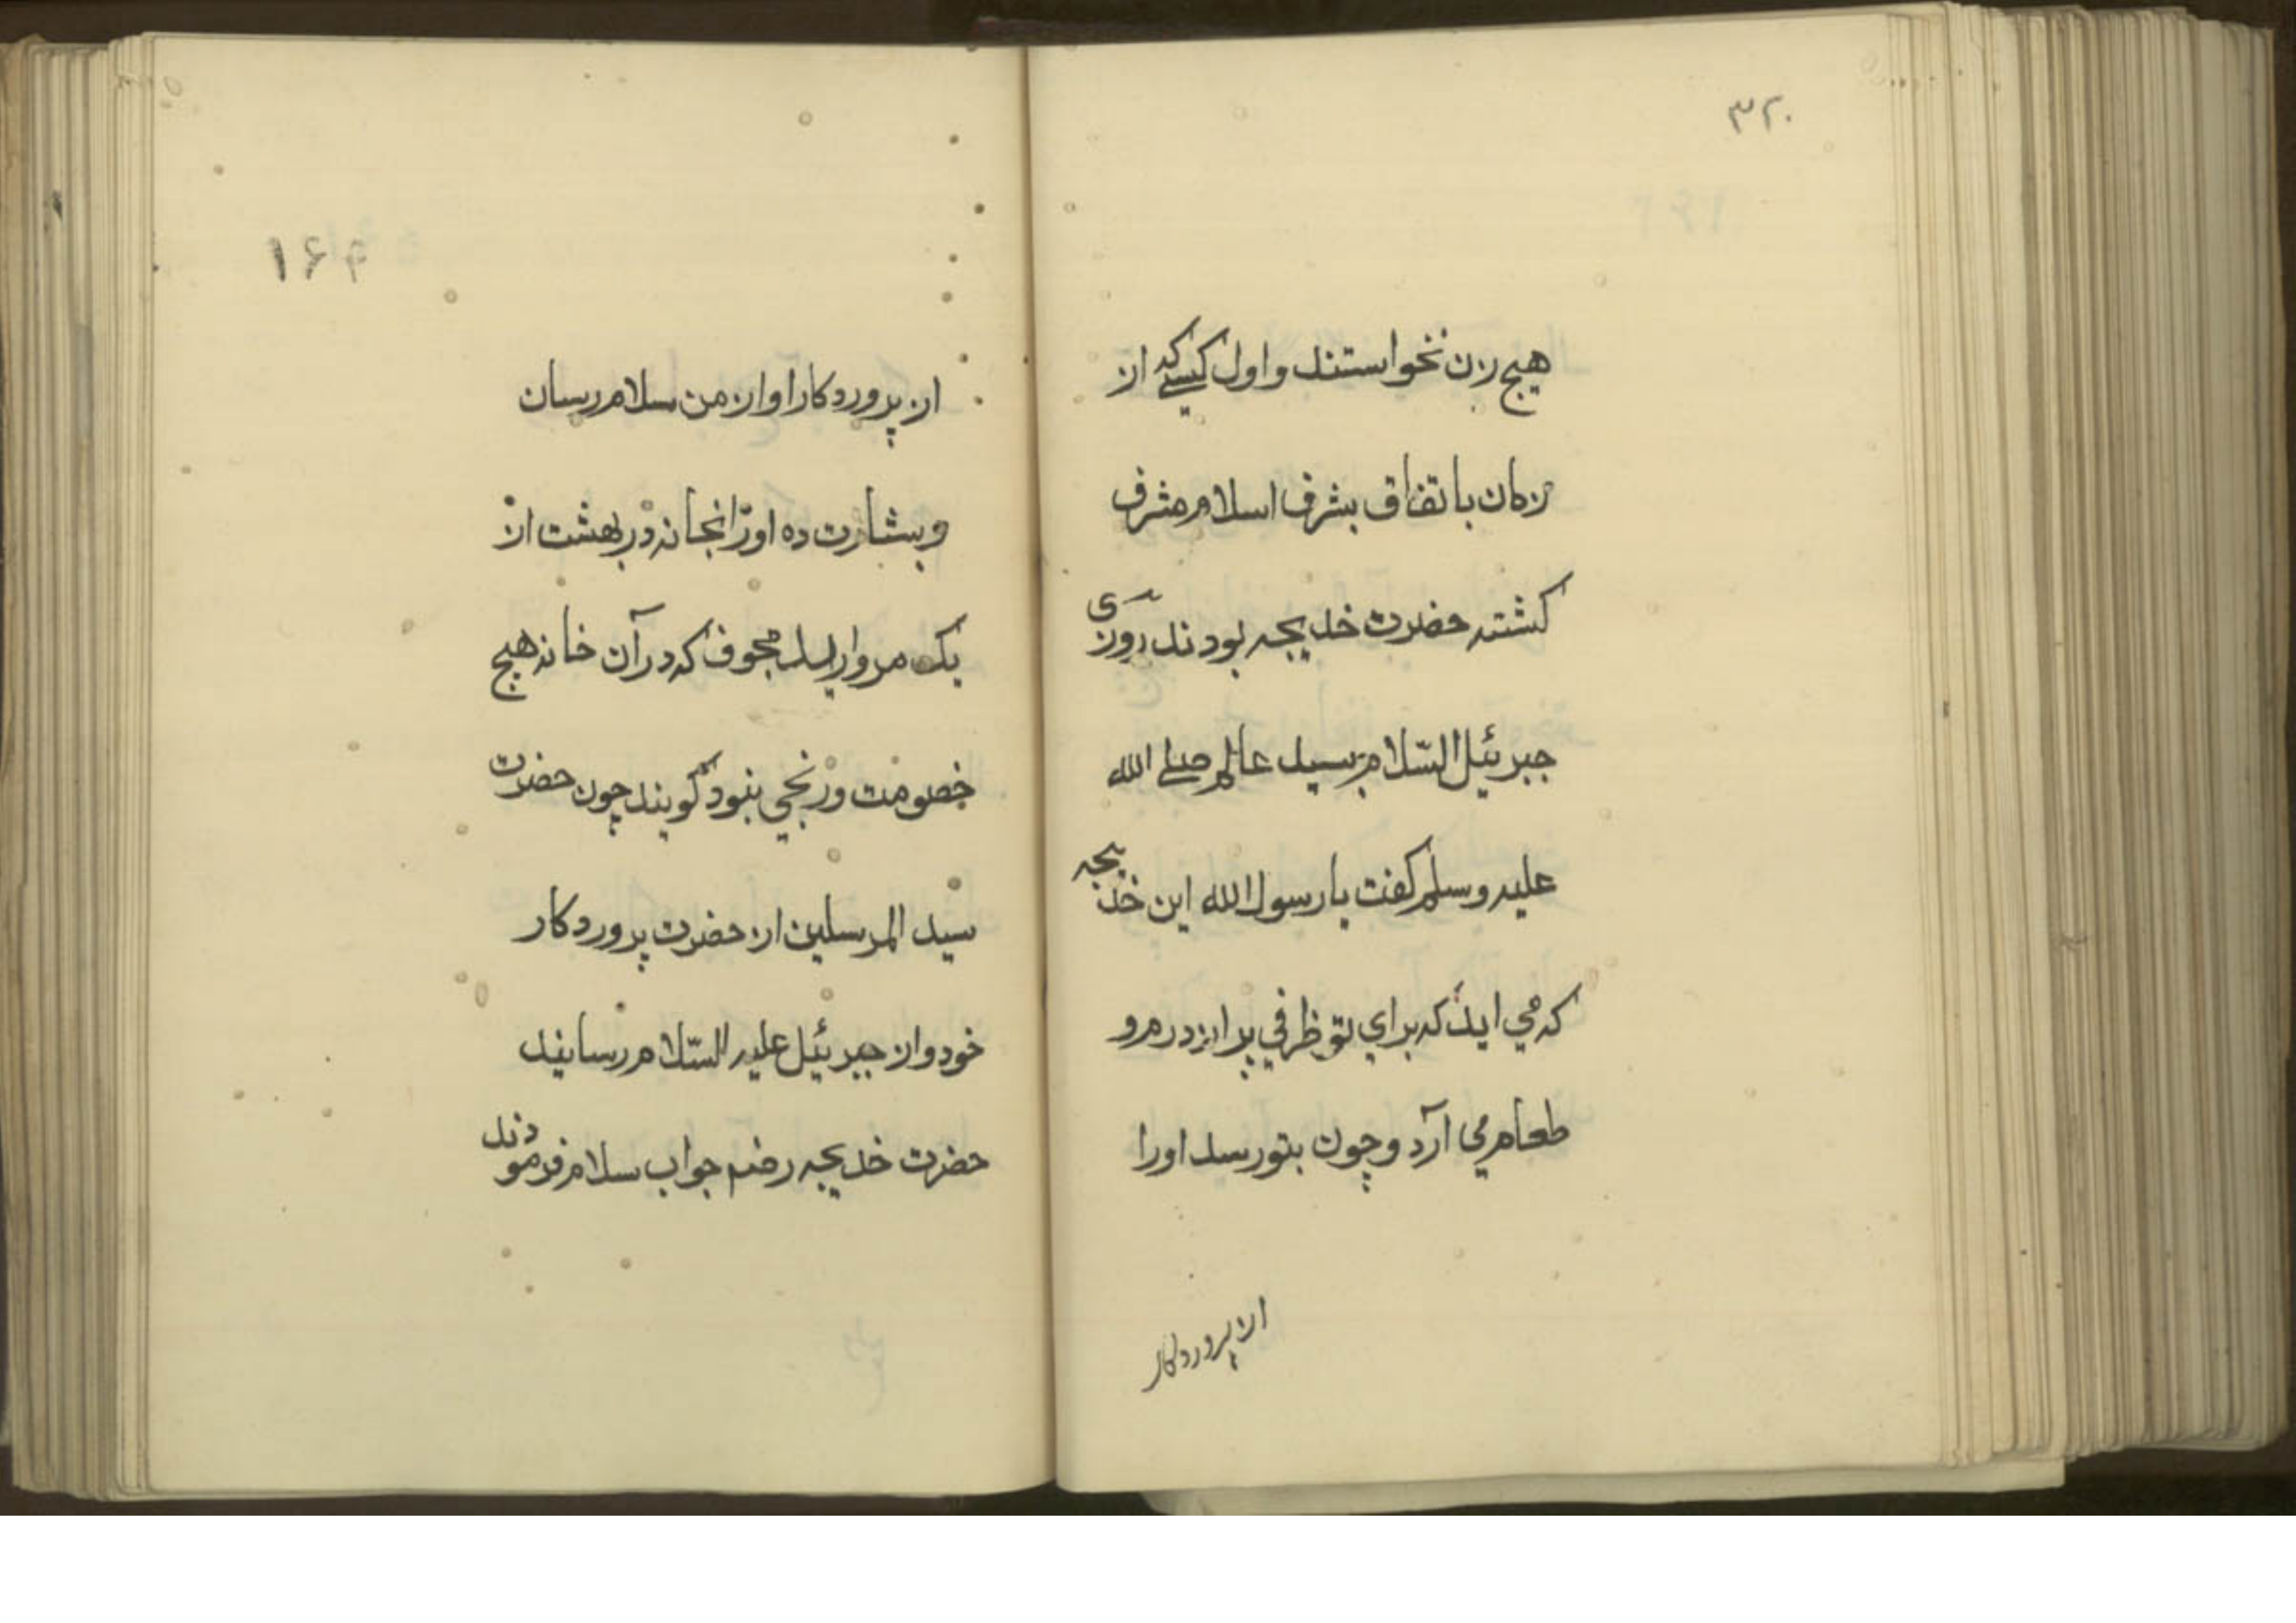 ۳۲۰
هیچ زن نخواستند و اول کسیکه از
زنان باتفاق بشرف اسلام مشرف
کشته حضرت خدیجه بودند روزی
جبرئیل السّلام بسید عالم صلے الله
علیه وسلم کفت یا رسول الله این خدیجه
که می اید که برای تو ظرفي پر از در مرو
طعام می آرد و چون بتو رسد اورا
از پروردکار
۱۶۴
از پروردکار او از من سلام رسان
و بشارت ده اورا نجانه در بهشت از
یک مروارید مجوف که در آن خانه هیچ
خصومت و رنجي نبود کویند چون حضرت
سید المرسلین از حضرت پروردکار
خود و از جبرئیل علیه السّلام رسانید
حضرت خدیجه رضم جواب سلام فرمودند